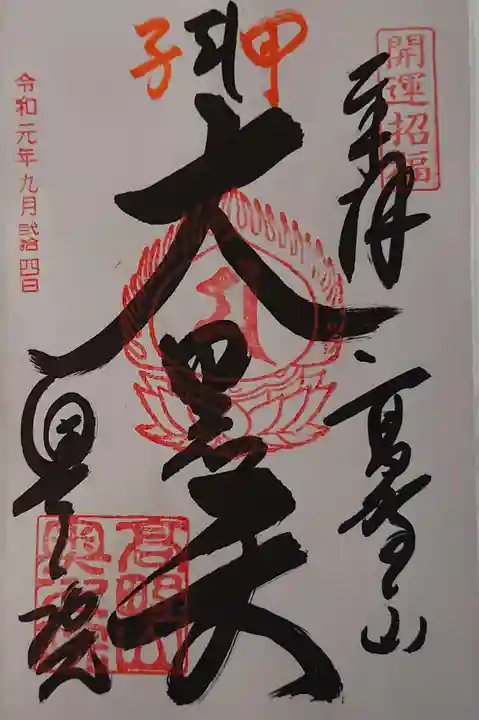 開運招福
奉拝
高野山
甲子
大黒天
奥之院
高野山
奥之院
令和元年九月弐拾四日